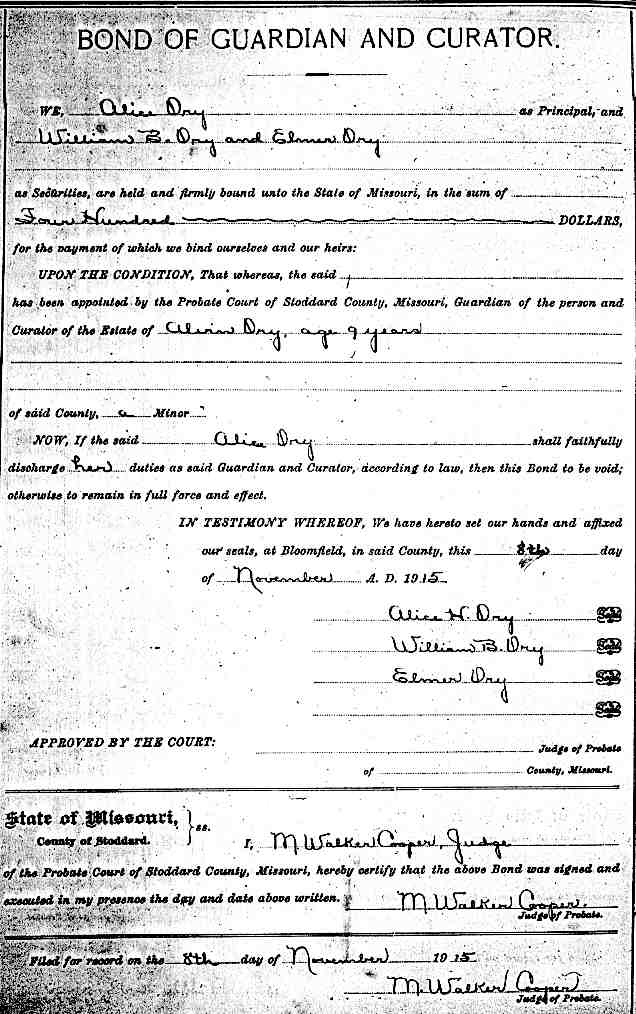 BOND OF GUARDIAN AND CURATOR.
WE, Alice Dry as Principal, and
William B. Dry and Elmer Dry
as Securities, are held and firmly bound unto the State of Missouri, in the sum of
Four Hundred DOLLARS,
for the payment of which we bind ourselves and our heirs:
UPON THE CONDITION, That whereas, the said
has been appointed by the Probate Court of Stoddard County, Missouri, Guardian of the person and
Curator of the Estate of Alvin Dry, age 9 years
of said County, a Minor
NOW, If the said Alice Dry shall faithfully
discharge her duties as said Guardian and Curator, according to law, then this Bond to be void;
otherwise to remain in full force and effect.
IN TESTIMONY WHEREOF, We have hereto set our hands and affixed
our seals, at Bloomfield, in said County, this 8th day
of November A. D. 1915
Alice H. Dry Seal
William B. Dry Seal
Elmer Dry Seal
Seal
APPROVED BY THE COURT:
Judge of Probate
of County, Missouri.
State of Missouri, } ss.
County of Stoddard.
I, M Walker Cooper, Judge
of the Probate Court of Stoddard County, Missouri, hereby certify that the above Bond was signed and
executed in my presence the day and date above written. M Walker Cooper.
Judge of Probate.
Filed for record on the 8th day of November 1915
M. Walker Cooper
Judge of Probate.